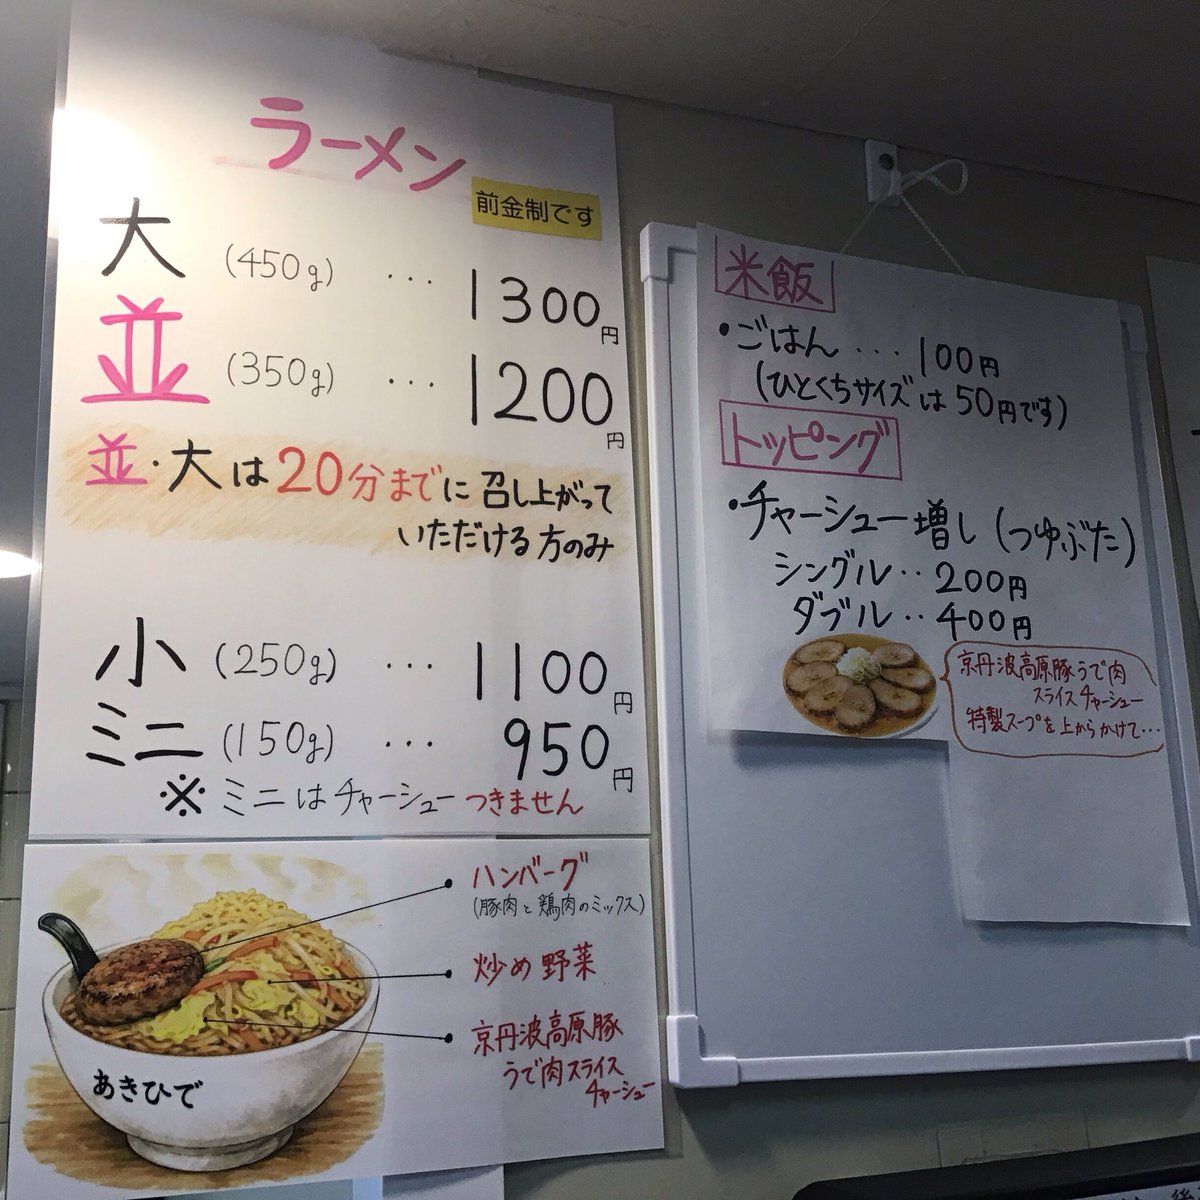 ラーメン
前金制です
大 (450g) ... 1300円
並 (350g) ... 1200円
並・大は20分までに召し上がって
いただける方のみ
小 (250g) ... 1100円
ミニ (150g) ... 950円
※ミニはチャーシューつきません
ハンバーグ
(豚肉と鶏肉のミックス)
炒め野菜
京丹波高原豚
うで肉スライス
チャーシュー
あきひで
米飯
・ごはん...100円
(ひとくちサイズは50円です)
トッピング
・チャーシュー増し(つゆぶた)
シングル‥200円
ダブル‥400円
京丹波高原豚うで肉
スライスチャーシュー
特製スープを上からかけて…